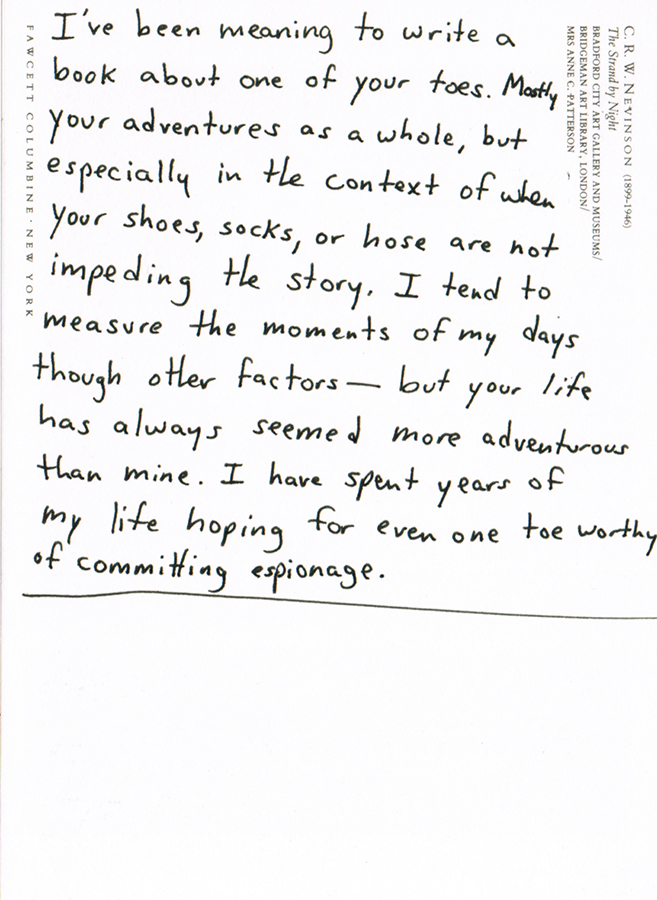 I've been meaning to write a
book about one of your toes. Mostly
your adventures as a whole, but
especially in the context of when
your shoes, socks, or hose are not
impeding the story. I tend to
measure the moments of my days
though other factors — but your life
has always seemed more adventurous
than mine. I have spent years of
my life hoping for even one toe worthy
of committing espionage.
C. R. W. NEVINSON (1899-1946)
The Strand by Night
BRADFORD CITY ART GALLERY AND MUSEUMS/
BRIDGEMAN ART LIBRARY, LONDON/
MRS ANNE C. PATTERSON
FAWCETT COLUMBINE · NEW YORK